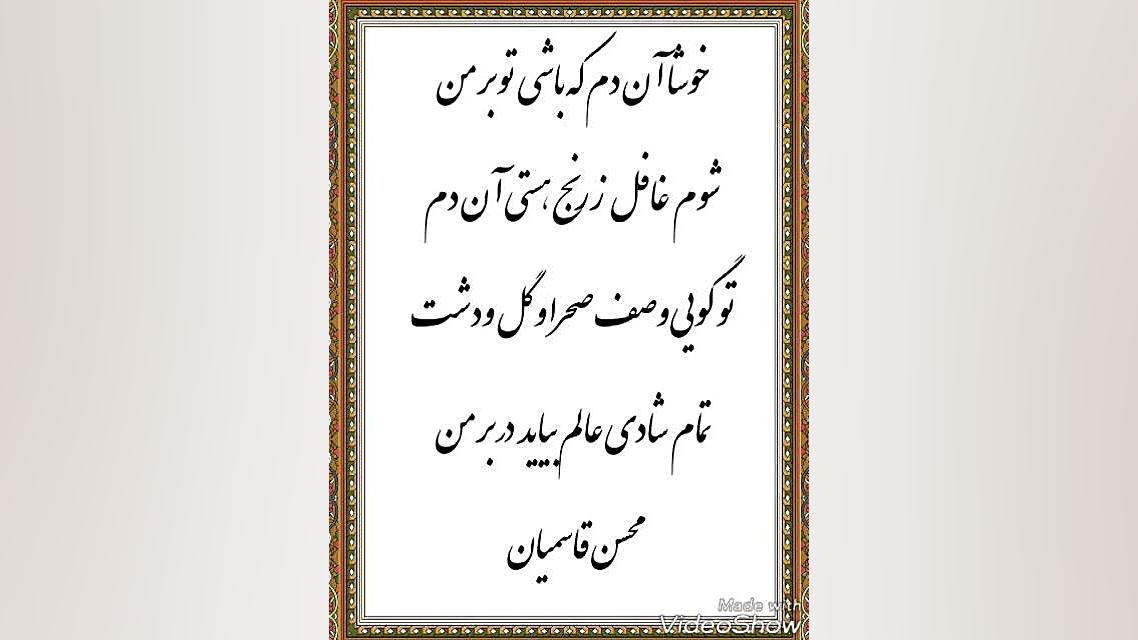 خوشا آن دم که باشی تو بر من
شوم غافل ز رنج هستی آن دم
تو گویی وصف صحرا و گل و دشت
تمام شادی عالم بیاید در بر من
محسن قاسمیان
Made with
VideoShow